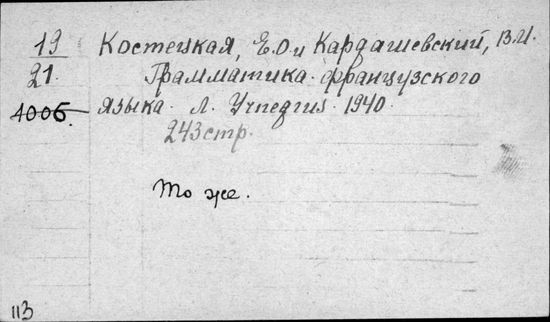 19 Костецкая, Е.О. и Кардашевский, В.И.
21. Грамматика французского
4006. языка. Л. Учпедгиз. 1940.
243 стр.
То же.
113